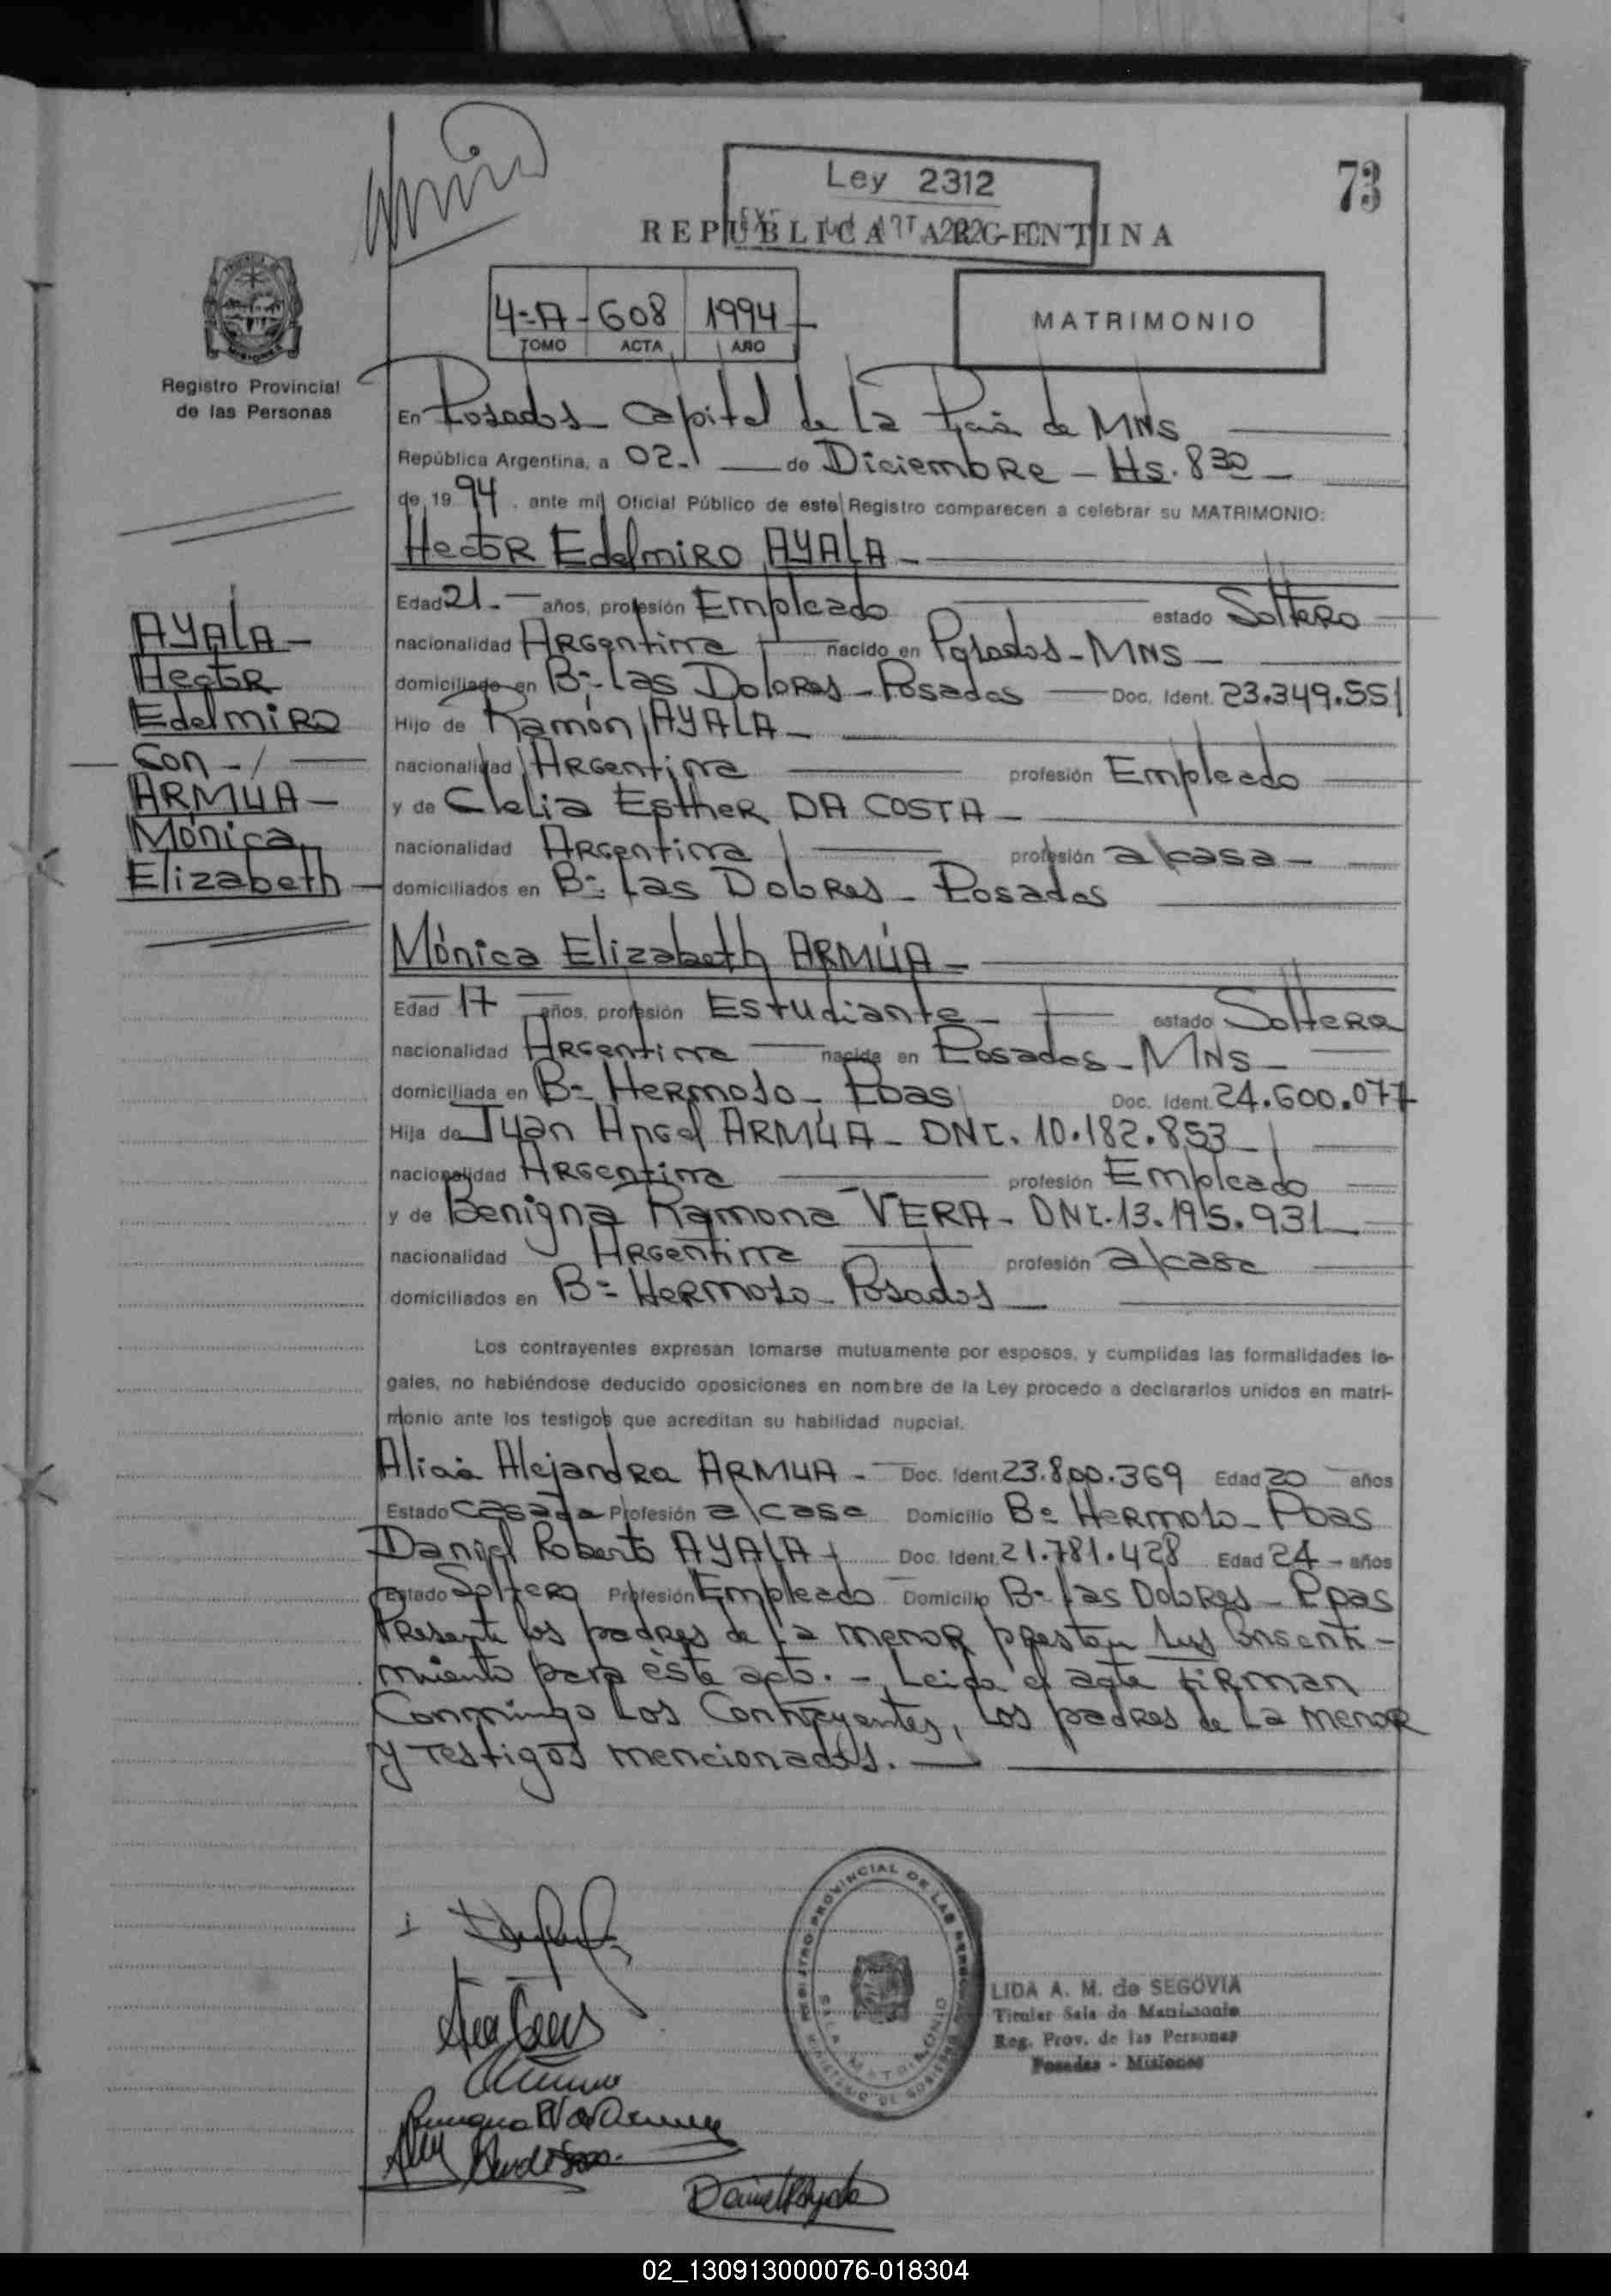 73
Ley 2312
REPUBLICA ARGENTINA
4-A - 608 1994
TOMO ACTA AÑO
MATRIMONIO
Registro Provincial
de las Personas
En Posadas Capital de la Pcia de MNS
República Argentina, a 02. de Diciembre - Hs. 8 30
de 19 94, ante mi Oficial Público de este Registro comparecen a celebrar su MATRIMONIO:
Hector Edelmiro AYALA
Edad 21 años, profesión Empleado estado Soltero
nacionalidad Argentina nacido en Posadas - MNS
domiciliado en Bº Las Dolores - Posadas Doc. Ident. 23.349.551
Hijo de Ramón AYALA
nacionalidad Argentina profesión Empleado
y de Clelia Esther DA COSTA
nacionalidad Argentina profesión a/casa
domiciliados en Bº Las Dolores - Posadas
AYALA
Hector
Edelmiro
Con
ARMUA
Mónica
Elizabeth
Mónica Elizabeth ARMÚA
Edad 17 años, profesión Estudiante estado Soltera
nacionalidad Argentina nacida en Posadas - MNS
domiciliada en Bº Hermoso - Pdas Doc. Ident. 24.600.077
Hija de Juan Angel ARMUA - DNI. 10.182.853
nacionalidad Argentina profesión Empleado
y de Benigna Ramona VERA - DNI. 13.195.931
nacionalidad Argentina profesión a/casa
domiciliados en Bº Hermoso - Posadas
Los contrayentes expresan tomarse mutuamente por esposos, y cumplidas las formalidades le-
gales, no habiéndose deducido oposiciones en nombre de la Ley procedo a declararlos unidos en matri-
monio ante los testigos que acreditan su habilidad nupcial.
Alicia Alejandra ARMUA - Doc. Ident. 23.800.369 Edad 20 años
Estado casada Profesión a/casa Domicilio Bº Hermoso - Pdas
Daniel Roberto AYALA Doc. Ident. 21.781.428 Edad 24 años
Estado Soltero Profesión Empleado Domicilio Bº Las Dolores - Pdas
Presente los padres de la menor prestan sus consenti-
miento para éste acto. - Leida el acta firman
Conmigo los Contrayentes, los padres de la menor
y testigos mencionados.
REGISTRO PROVINCIAL DE LAS PERSONAS
SALA MATRIMONIO
MINISTERIO DE GOBIERNO
LIDA A. M. de SEGOVIA
Titular Sala de Matrimonio
Reg. Prov. de las Personas
Posadas - Misiones
02_130913000076-018304